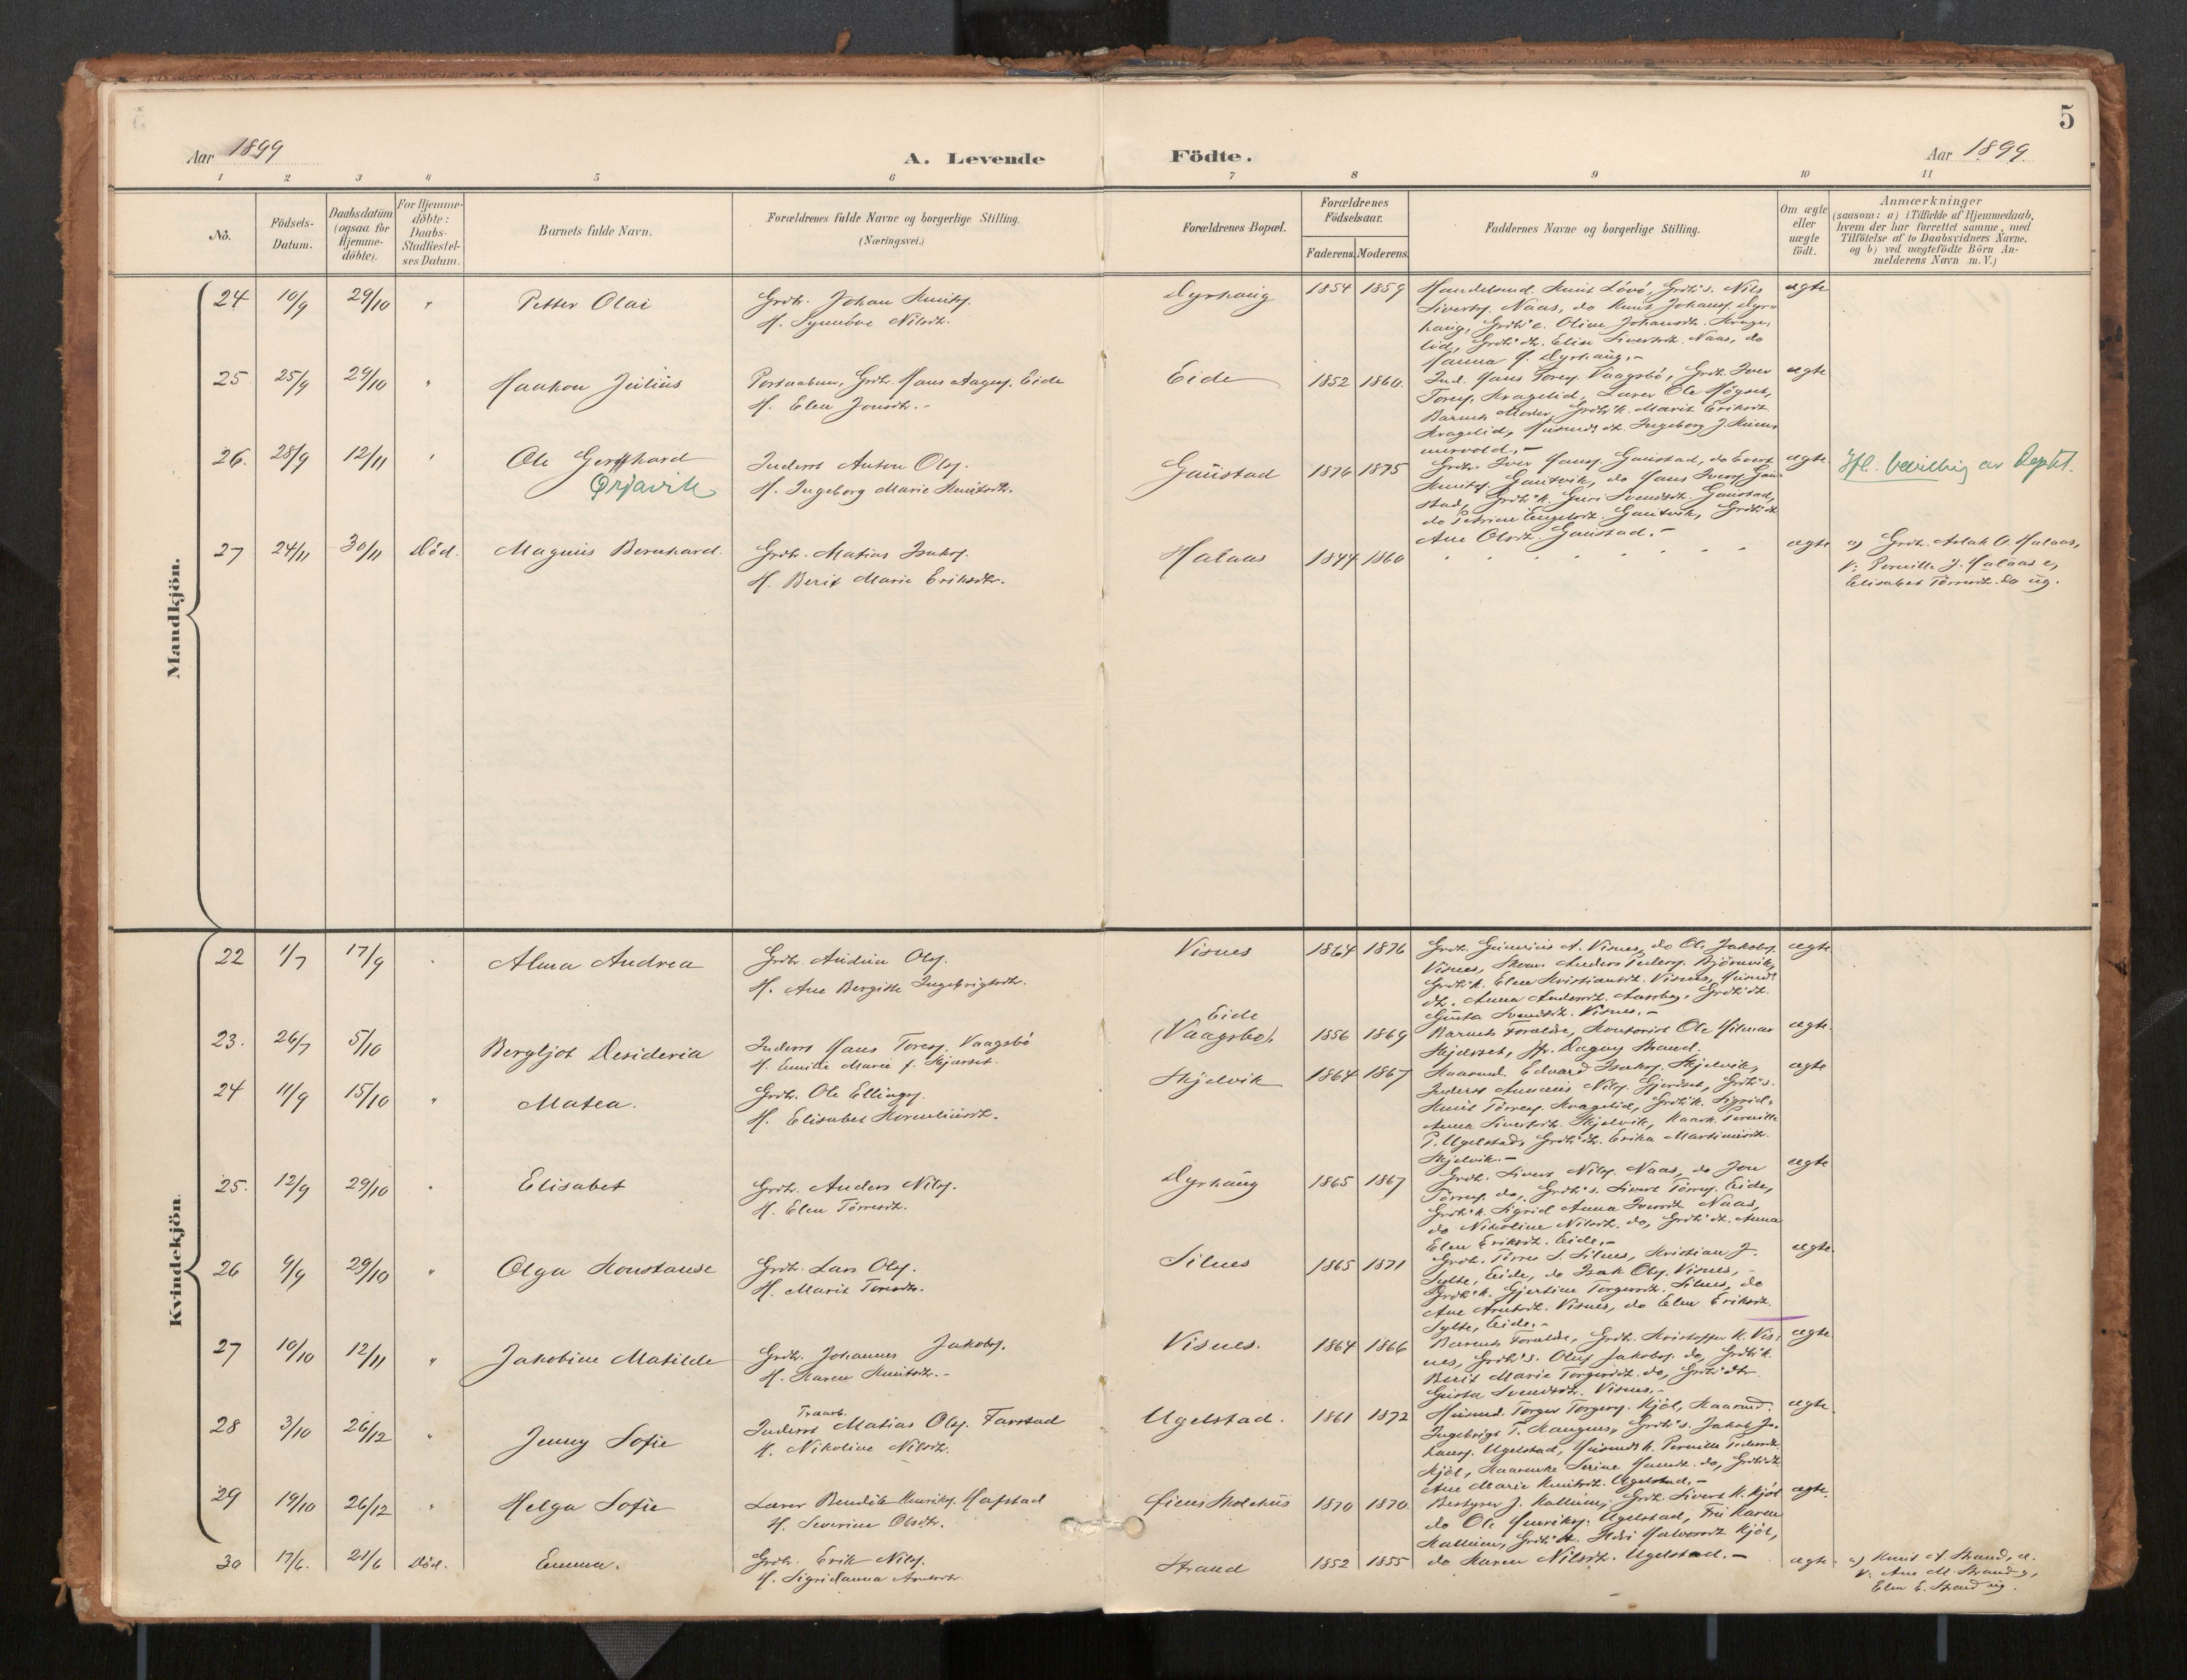 5
Aar 1899
A. Levende
Födte.
Aar 1899.
1 2 3 4 5 6 7 8 9 10 11
No.
Födsels-
Datum.
Daabsdatum
(ogsaa for
Hjemme-
döbte).
For Hjemme-
döbte:
Daabs-
Stadfæstel-
ses Datum.
Barnets fulde Navn.
Forældrenes fulde Navne og borgerlige Stilling.
(Næringsvei.)
Forældrenes Bopæl.
Forældrenes
Födselsaar.
Faderens. Moderens.
Faddernes Navne og borgerlige Stilling.
Om ægte
eller
uægte
födt.
Anmærkninger
(saasom: a) i Tilfælde af Hjemmedaab,
hvem der har forrettet samme, med
Tilföielse af to Daabsvidners Navne,
og b) ved uægtefödte Börn An-
melderens Navn m. V.)
Mandkjön.
24 10/9 29/10 " Petter Olai
Grdb. Johan Knuts.
H. Synnöve Nilsdt.
Dyrhaug 1854 1859
Handelsmd. Knut Lövö, Grdb's. Nils
Siverts. Naas, do Knut Johans. Dyr-
haug, Grdb'e. Oline Johansdt. Krage-
lid, Grdb'dt. Elise Sivertsdt. Naas, do
Hanna J. Dyrhaug.-
ægte
25 25/9 29/10 " Haakon Julius
Postaabner, Grdb. Hans Aages. Eide
H. Elen Jonsdt.-
Eide 1852 1860.
Ind. Hans Tores. Vaagsbö, Grdb. Iver
Tores. Kragelid, Lærer Ole Högset,
Barnets Moder, Grdb'k. Marit Eriksdt.
Kragelid, Husmds dt. Ingeborg J.
ægte
26. 28/9 12/11 " Ole Gerhard
Ørjavik
Inderst Anton Ols.
H. Ingeborg Marie Knutsdt.
Gaustad 1876 1875
Grdb. Iver Hans. Gaustad, do Evert
Knuts. Gautvik, do Hans Ivers. Gau-
stad, Grdb'k. Guri Svendsdt. Gaustad,
do Petrine Engelsdt. Gautvik, Grdb'dt
Ane Olsdt. Gaustad.-
ægte
Ifl. bevilling av Deptet.
27 24/11 30/11 Död. Magnus Bernhard.
Grdb. Matias Isaks.
H. Berit Marie Eriksdt.
Halaas 1844 1860
ægte
a) Grdb. Aslak O. Halaas,
V: Pernille J. Halaas e,
Elisabet Törresdt. do ug.
Kvindekjön.
22 1/7 17/9 " Alma Andrea
Grdb. Andrea Ols.
H. Ane Bergitte Ingebrigtsdt.
Visnes 1864 1876
Grdb. Gunerius A. Visnes, do Ole Jakobs.
Visnes, Skom. Anders Peders. Björnvik,
Grdb'k. Elen Kristiansdt. Visnes, Husmds
dt. Anna Andersdt. Aarsbog, Grdb'dt.
Gusta Svendsdt. Visnes.-
ægte
23. 26/7 5/10 Bergljot Desideria
Inderst Hans Tores. Vaagsbö
H. Emilie Marie f. Skjærset.
Eide
(Vaagsbö). 1856 1869
Barnets Forældre, Kontorist Ole Hilmar
Skjærset, Jfr. Dagny Strand.
ægte.
24 11/9 15/10 " Matea.
Grdb. Ole Ellings.
H. Elisabet Korneliusdt.
Skjelvik 1864 1867
Kaarmd. Edvard Isaks. Skjelvik,
Inderst Annanias Nils. Gjerdset, Grdb's.
Knut Törres. Kragelid, Grdb'k. Sigrid-
Anna Sivertsdt. Skjelvik, Kaark. Pernille
P. Ugelstad, Grdb'dt. Erika Martinusdt.
Skjelvik.-
ægte
25. 12/9 29/10 " Elisabet
Grdb. Anders Nils.
H. Elen Törresdt.
Dyrhaug 1865 1867
Grdb. Sivert Nils. Naas, do Jon
Törres. do, Grdb's. Sivert Törres. Eide,
Grdb'k. Sigrid Anna Iversdt. Naas,
do Nikoline Nilsdt. do, Grdb'dt. Anna
Elen Eriksdt. Eide.-
ægte
26 9/9 29/10 " Olga Konstanse
Grdb. Lars Ols.
H. Marit Toresdt.
Silnes 1865 1871
Grdb. Törres S. Silnes, Kristian J.
Sylte, Eide, do Isak Ols. Visnes,-
Grdb'k. Gjertine Torgersdt. Silnes, do
Ane Arntsdt. Visnes, do Elen Eriksdt.
Sylte, Eide.-
ægte.
27 10/10 12/11 " Jakobine Matilde
Grdb. Johannes Jakobs.
H. Karen Knutsdt.-
Visnes. 1864 1866
Barnets Forældre, Grdb. Kristoffer K. Vis-
nes, Grdb's. Oluf Jakobs. do, Grdb'k.
Berit Marie Torgersdt. do, Grdb'dt
Gusta Svendsdt. Visnes.-
ægte.
28 3/10 26/12 " Jenny Sofie
Traarb.
Inderst Matias Ols. Farstad
H. Nikoline Nilsdt.
Ugelstad. 1861 1872
Husmd. Torger Torgers. Kjöl, Kaarmd.
Ingebrigt T. Haugnes, Grdb's. Jakob Jo-
hans. Ugelstad, Husmds k. Pernille Pedersdt.
Kjöl, Kaarenke Serine Hansdt. do, Grdb'dt
Ane Marie Knutsdt. Ugelstad.-
ægte.
29 19/10 26/12 " Helga Sofie
Lærer Bendik Henriks. Hafstad
H. Severine Olsdt.
Lines Skolehus 1870 1870.
Bestyrer J. Hallum, Grdb. Sivert K. Kjöl
do Ole Henriks. Ugelstad, Fru Karen
Hallum, Grdb'k. Halvorsdt. Kjöl,
do Karen Nilsdt. Ugelstad.-
ægte.
30 17/6. 21/6 Död. Emma.
Grdb. Erik Nils.
H. Sigridanna Arntsdt.
Strand 1852 1855
ægte.
a) Knut A. Strand, e.
V: Ane M. Strand g,
Elen E. Strand ug.